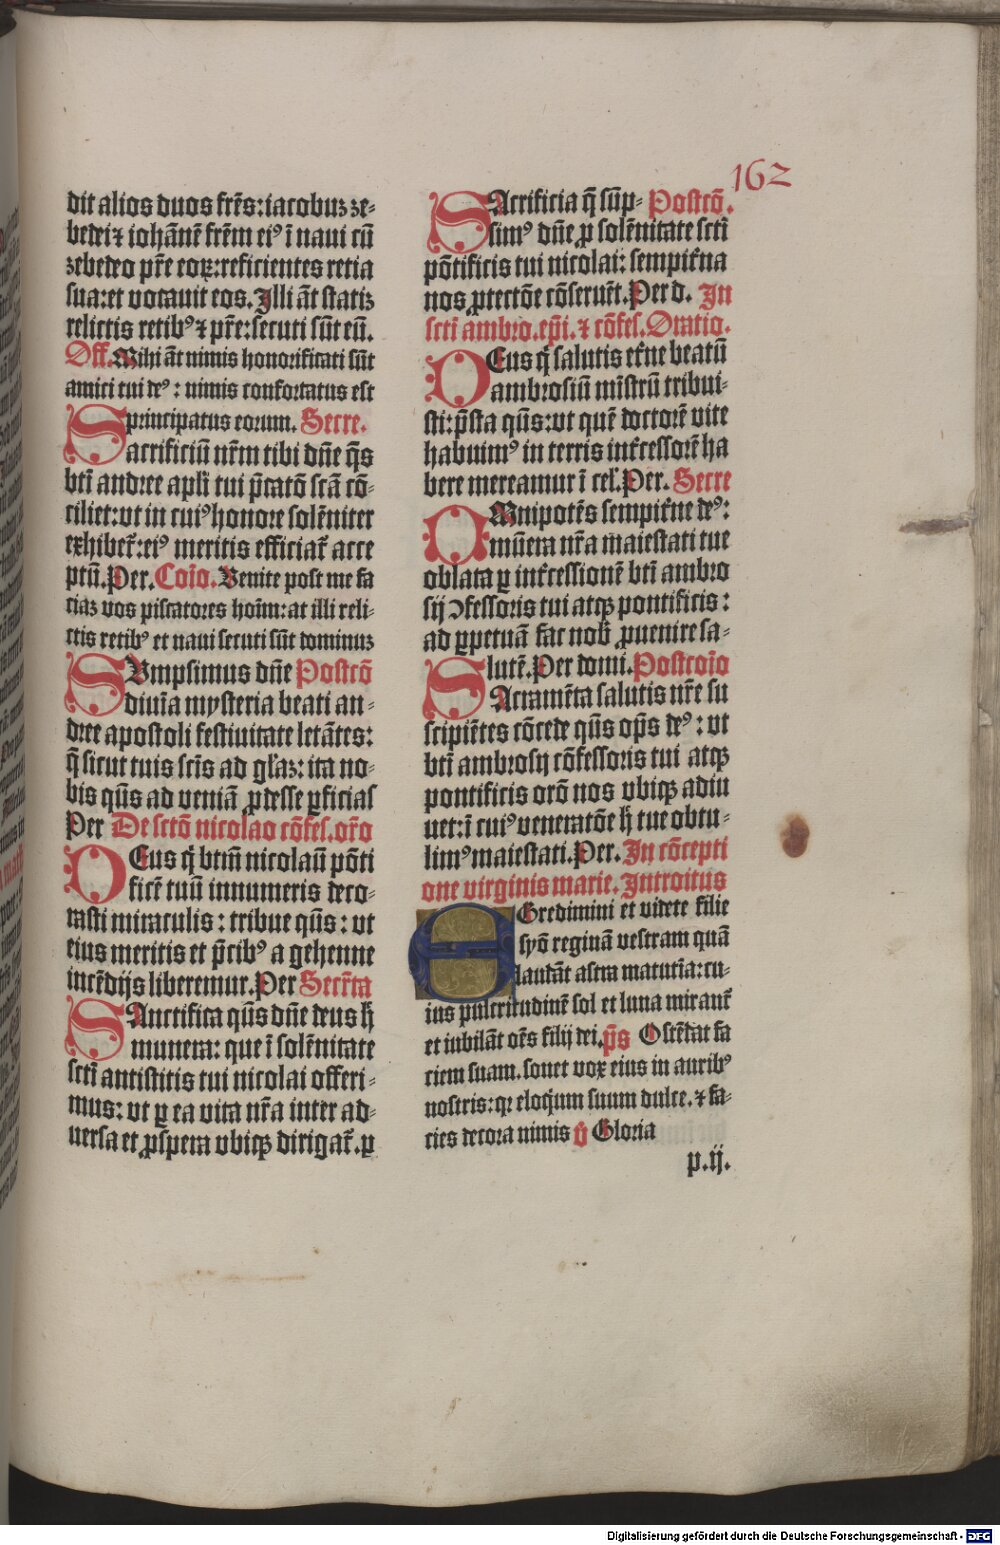 162
dit alios duos frēs: iacobuȝ ze-
bedei ⁊ iohānē frēm eiꝰ ī naui cū
zebedeo p̄re eoꝝ: reficientes retia
sua: et vocauit eos. Illi āt statiȝ
relictis retibꝰ ⁊ p̄re: secuti sūt eū.
Off. Mihi āt nimis honorificati sūt
amici tui deꝰ: nimis confortatus est
principatus eorum. Secre.
Sacrificiū nr̄m tibi dn̄e q̄s
bt̄i andree apl̄i tui p̄catō scā cō-
ciliet: vt in cuiꝰ honore solēniter
exhibet᷑: eiꝰ meritis efficiat᷑ acce
ptū. Per. Cōio. Venite post me fa
ciaȝ vos piscatores hoīm: at illi reli-
ctis retibꝰ et naui secuti sūt dominuȝ
SVmpsimus dn̄e Postcō
diuīa mysteria beati an-
dree apostoli festiuitate letātes:
q̄ sicut tuis scīs ad gl̄aȝ: ita no-
bis qūs ad veniā ꝓdesse ꝑficias
Per De sctō nicolao cōfes. or̄o
DEus q̄ btm̄ nicolaū pōti
ficē tuū innumeris deco-
rasti miraculis: tribue qūs: vt
eius meritis et p̄cibꝰ a gehenne
incēdijs liberemur. Per Secr̄ta
SAnctifica qūs dn̄e deus h̄
munera: que ī solēnitate
sctī antistitis tui nicolai offeri-
mus: vt ꝑ ea vita nr̄a inter ad-
uersa et ꝓspera vbiqꝫ dirigat᷑. ꝑ
SAcrificia q̄ sūp- Postcō.
simꝰ dn̄e ꝓ solēnitate sctī
pōtificis tui nicolai: sempit᷑na
nos ꝓtectōe cōseruēt. Per d. In
sctī ambro. ep̄i. ⁊ cōfes. Oratio.
DEus q̄ salutis et᷑ne beatū
ambrosiū mīstrū tribui-
sti: p̄sta qūs: vt quē doctorē vite
habuimꝰ in terris int᷑cessorē ha
bere mereamur ī cel̄. Per. Secre
OMnipotēs sempit᷑ne deꝰ:
mūera nr̄a maiestati tue
oblata ꝑ int᷑cessionē bt̄i ambro
sij ꝯfessoris tui atqꝫ pontificis:
ad ꝑpetuā fac nob̄ ꝓuenire sa-
lutē. Per domi. Postcoīo
SAcramēta salutis nr̄e su
scipiētes cōcede qūs op̄s deꝰ: vt
bt̄i ambrosij cōfessoris tui atqꝫ
pontificis orō nos vbiqꝫ adiu
uet: ī cuiꝰ veneratōe h̄ tue obtu-
limꝰ maiestati. Per. In cōcepti
one virginis marie. Introitus
EGredimini et videte filie
syō reginā vestram quā
laudāt astra matutīa: cu-
ius pulcritudinē sol et luna mirant᷑
et iubilāt oēs filij dei. p̄s Ostēdat fa
ciem suam. sonet vox eius in auribꝰ
nostris: qꝛ eloq̄um suum dulce. ⁊ fa-
cies decora nimis v̄ Gloria
p.ij.
Digitalisierung gefördert durch die Deutsche Forschungsgemeinschaft - DFG